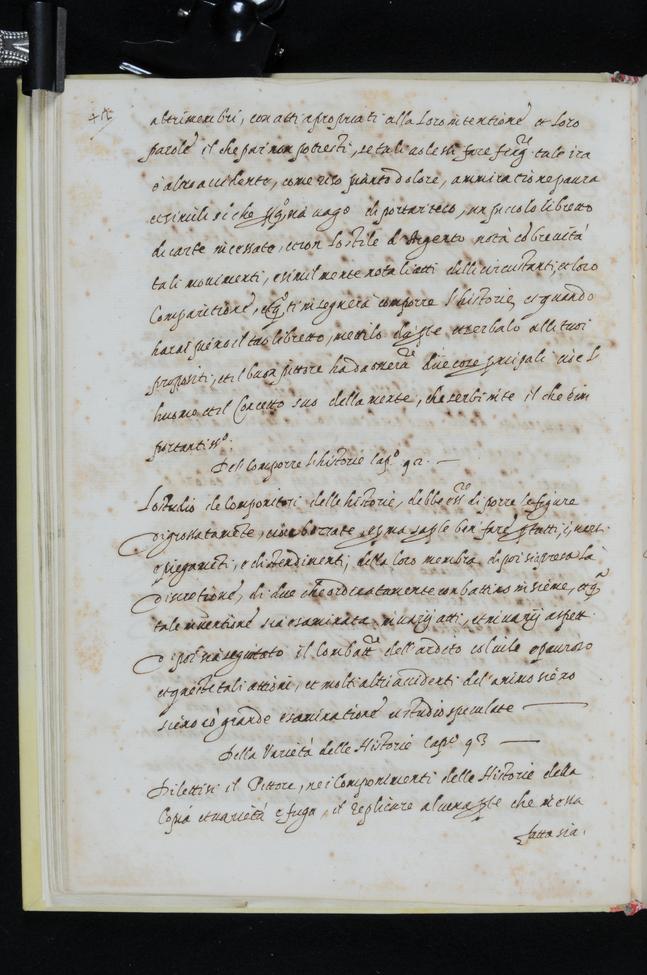 altri membri, con atti apropriati alla loro intentione et loro
parole il che far non potresti, se tali volessi fare fing.re tale ira
o altro accidente, come riso pianto dolore, ammiratione paura
et simili si che vago di portar teco, un piciolo libretto
di carte incessate, et con lo stile d'Argento nota cõ brevità
tali movimenti, e similmente nota li atti delli circustanti, et loro
Compartitione, et q.º ti insegnerà comporre l'historie, et quando
harai pieno il tuo libretto, mettilo da p.te et serbalo alli tuoi
propositi, et il buon pittore ha da osserv.re due cose principali cioè l
huomo et il Concetto suo della mente, che serbi in te il che è im
portantiss.º
Del Comporre l'historie Cap.º 92. —
Lo studio de componitori delle historie, debbe ess.re di porre le figure
digrossatamẽte, cioè bozzate, et ma saple ben fare p tutti i versi
e piegamẽti, e distendimenti, della loro membra di poi si presa la
discretione, di due che ordinatamente combattino insieme, et q.ª
tale inventione sia esaminata in varij atti, et in varij aspett
di poi sia seguitato il combatt.re dell'ardito col vile e pauroso
et queste tali attioni, et molti altri accidenti del animo sieno
sieno cõ grande esaminatione et studio speculate —
Della Varietà delle Historie Cap.º 93 —
Dilettisi il Pittore, ne i Componimenti delle Historie della
Copia et varietà e fuga, il replicare alcuna p.te che in essa
fatta sia.